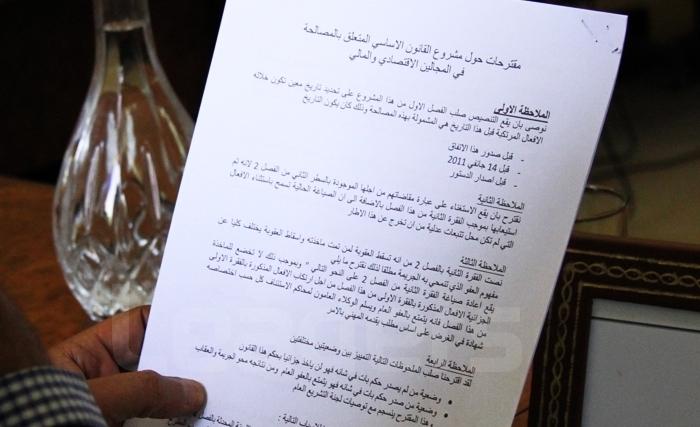 مقترحات حول مشروع القانون الاساسي المتعلق بالمصالحة
في المجالين الاقتصادي والمالي
الملاحظة الاولى
نوصي بان يقع التنصيص صلب الفصل الاول من هذا المشروع على تحديد تاريخ معين تكون خلاله
الافعال المرتكبة قبل هذا التاريخ هي المشمولة بهذه المصالحة وذلك كان يكون التاريخ
- قبل صدور هذا الاتفاق
- قبل 14 جانفي 2011
- قبل اصدار الدستور
الملاحظة الثانية
نقترح بان يقع الاستغناء على عبارة مقاضاتهم من اجلها الموجودة بالسطر الثاني من الفصل 2 لانه تم
استيعابها بموجب الفقرة الثانية من هذا الفصل بالاضافة الى ان الصياغة الحالية تسمح باستثناء الافعال
التي لم تكن محل تتبعات عدلية من ان تخرج عن هذا الاطار
الملاحظة الثالثة
نصت الفقرة الثانية بالفصل 2 من انه تسقط العقوبة لمن تمت ماخذته واسقاط العقوبة يختلف كليا عن
مفهوم العفو الذي تنمحي به الجريمة مطلقا لذلك نقترح ما يلي
يقع اعادة صياغة الفقرة الثانية من الفصل 2 على النحو التالي " وبموجب ذلك لا تخضع للماخذة
الجزائية الافعال المذكورة بالفقرة الاولى من هذا الفصل من اجل ارتكاب الافعال المذكورة بالفقرة الاولى
من هذا الفصل فانه يتمتع بالعفو العام ويسلم الوكلاء العامون لمحاكم الاستئناف كل حسب اختصاصه
شهادة في الغرض على اساس مطلب يقدمه المهني بالامر
الملاحظة الرابعة
لقد اقترحنا صلب الملحوظات التالية التمييز بين وضعيتين مختلفتين
• وضعية من لم يصدر حكم بات في شانه فهو لن ياخذ جزائيا بحكم هذا القانون
• وضعية من صدر حكم بات في شانه فهو يتمتع بالعفو العام ومن نتائجه محو الجريمة والعقاب
وهذا المقترح ينسجم مع توصيات لجنة التشريع العام
التالية :